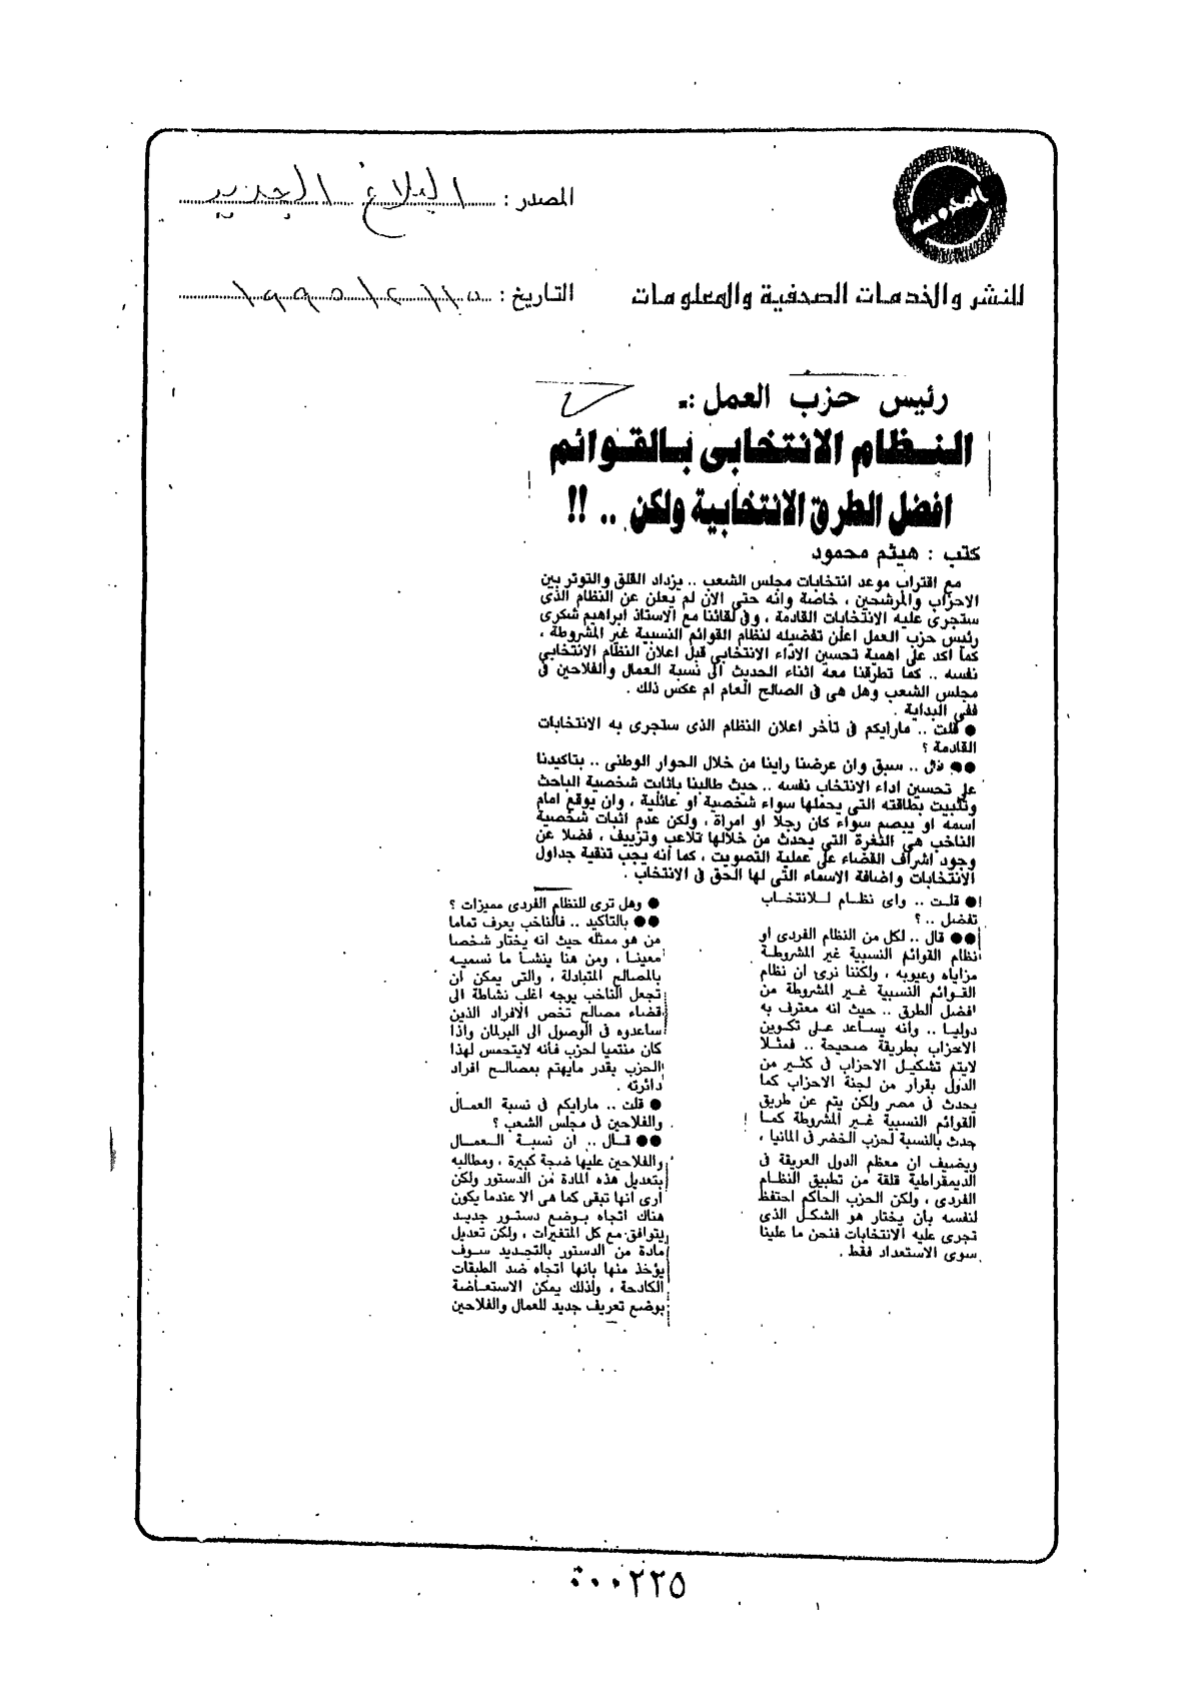 المدوسه
المصدر : البلاغ الجديد
للنشر والخدمات الصحفية والمعلومات
التاريخ : ١٩٩٥/٢/١٥
رئيس حزب العمل :ـ
النظام الانتخابى بالقوائم
افضل الطرق الانتخابية ولكن .. !!
كتب : هيثم محمود
مع اقتراب موعد انتخابات مجلس الشعب .. يزداد القلق والتوتر بين
الاحزاب والمرشحين ، خاصة وانه حتى الان لم يعلن عن النظام الذى
ستجرى عليه الانتخابات القادمة ، وفى لقائنا مع الاستاذ ابراهيم شكرى
رئيس حزب العمل اعلن تفضيله لنظام القوائم النسبية غير المشروطة ،
كما اكد على اهمية تحسين الاداء الانتخابى قبل اعلان النظام الانتخابى
نفسه .. كما تطرقنا معه اثناء الحديث الى نسبة العمال والفلاحين فى
مجلس الشعب وهل هى فى الصالح العام ام عكس ذلك .
ففى البداية .
● قلت .. مارايكم فى تأخر اعلان النظام الذى ستجرى به الانتخابات
القادمة ؟
●● قال .. سبق وان عرضنا راينا من خلال الحوار الوطنى .. بتاكيدنا
على تحسين اداء الانتخاب نفسه .. حيث طالبنا باثبات شخصية الناخب
وتثبيت بطاقته التى يحملها سواء شخصية او عائلية ، وان يوقع امام
اسمه او يبصم سواء كان رجلا او امراة ، ولكن عدم اثبات شخصية
الناخب هى الثغرة التى يحدث من خلالها تلاعب وتزييف ، فضلا عن
وجود اشراف القضاء على عملية التصويت ، كما انه يجب تنقية جداول
الانتخابات واضافة الاسماء التى لها الحق فى الانتخاب .
● قلت .. واى نظام للانتخاب
تفضل .. ؟
●● قال .. لكل من النظام الفردى او
نظام القوائم النسبية غير المشروطة
مزاياه وعيوبه ، ولكننا نرى ان نظام
القوائم النسبية غير المشروطة من
افضل الطرق .. حيث انه معترف به
دوليا .. وانه يساعد على تكوين
الاحزاب بطريقة صحيحة .. فمثلا
لايتم تشكيل الاحزاب فى كثير من
الدول بقرار من لجنة الاحزاب كما
يحدث فى مصر ولكن يتم عن طريق
القوائم النسبية غير المشروطة كما
حدث بالنسبة لحزب الخضر فى المانيا ،
ويضيف ان معظم الدول العريقة فى
الديمقراطية قلقة من تطبيق النظام
الفردى ، ولكن الحزب الحاكم احتفظ
لنفسه بان يختار هو الشكل الذى
تجرى عليه الانتخابات فنحن ما علينا
سوى الاستعداد فقط .
● وهل ترى للنظام الفردى مميزات ؟
●● بالتأكيد .. فالناخب يعرف تماما
من هو ممثله حيث انه يختار شخصا
معينا ، ومن هنا ينشا ما نسميه
بالمصالح المتبادلة ، والتى يمكن ان
تجعل الناخب يوجه اغلب نشاطة الى
قضاء مصالح تخص الافراد الذين
ساعدوه فى الوصول الى البرلمان واذا
كان منتميا لحزب فأنه لايتحمس لهذا
الحزب بقدر مايهتم بمصالح افراد
دائرته .
● قلت .. مارايكم فى نسبة العمال
والفلاحين فى مجلس الشعب ؟
●● قال .. ان نسبة العمال
والفلاحين عليها ضجة كبيرة ، ومطالبه
بتعديل هذه المادة من الدستور ولكن
أرى انها تبقى كما هى الا عندما يكون
هناك اتجاه بوضع دستور جديد
يتوافق مع كل المتغيرات ، ولكن تعديل
مادة من الدستور بالتجديد سوف
يؤخذ منها بانها اتجاه ضد الطبقات
الكادحة ، ولذلك يمكن الاستعاضة
بوضع تعريف جديد للعمال والفلاحين
٥٠٠٢٢٥